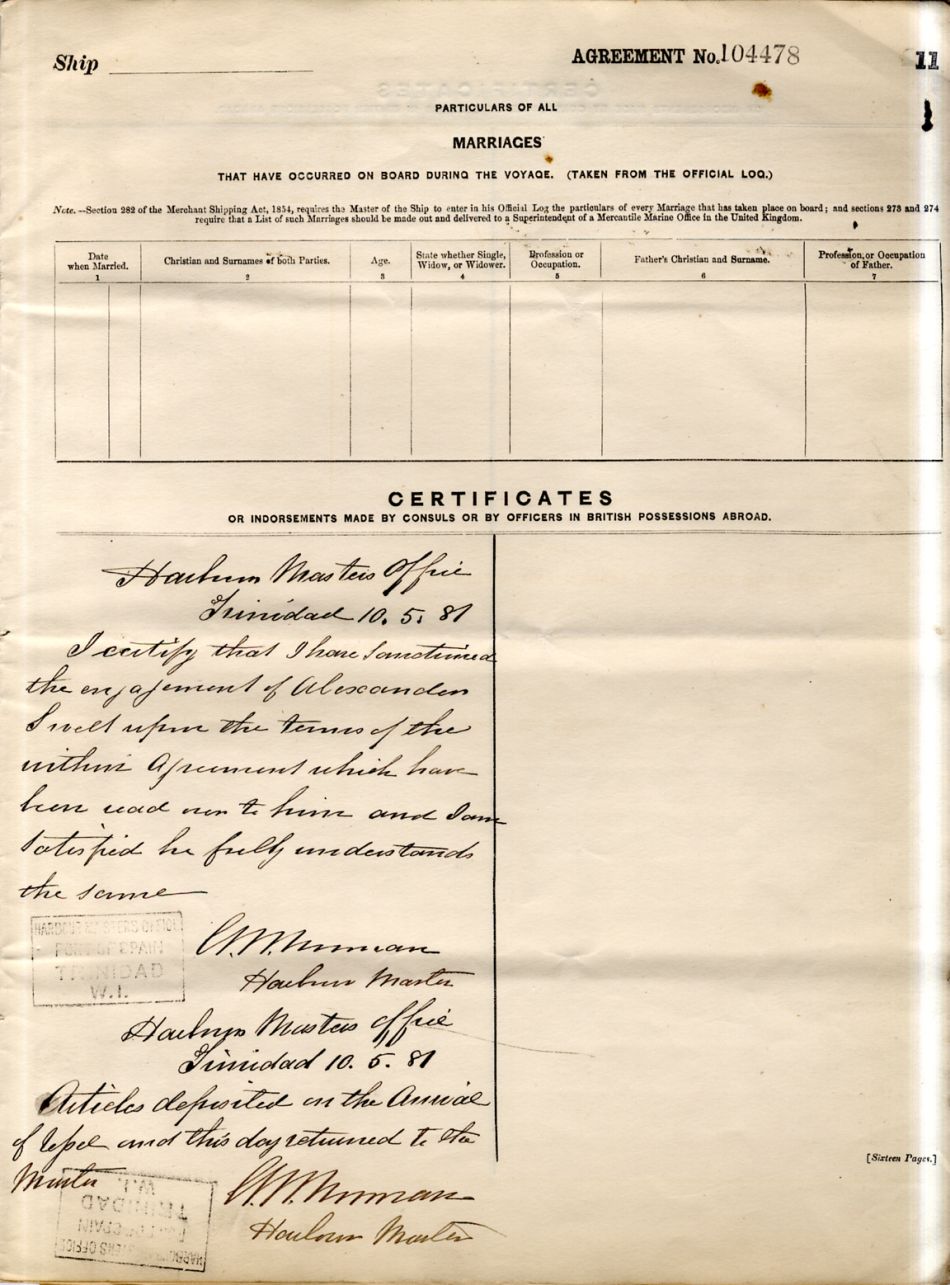 Ship
AGREEMENT No. 104478
11
PARTICULARS OF ALL
MARRIAGES
THAT HAVE OCCURRED ON BOARD DURING THE VOYAGE. (TAKEN FROM THE OFFICIAL LOG.)
Note.—Section 282 of the Merchant Shipping Act, 1854, requires the Master of the Ship to enter in his Official Log the particulars of every Marriage that has taken place on board; and sections 273 and 274
require that a List of such Marriages should be made out and delivered to a Superintendent of a Mercantile Marine Office in the United Kingdom.
Date when Married. 1
Christian and Surnames of both Parties. 2
Age. 3
State whether Single, Widow, or Widower. 4
Profession or Occupation. 5
Father's Christian and Surname. 6
Profession, or Occupation of Father. 7
CERTIFICATES
OR INDORSEMENTS MADE BY CONSULS OR BY OFFICERS IN BRITISH POSSESSIONS ABROAD.
Harbour Masters Office
Trinidad 10. 5. 81
I certify that I have sanctioned
the engagement of Alexander
upon the terms of the
within Agreement which have
been read over to him and I am
satisfied he fully understands
the same
HARBOUR MASTERS OFFICE
PORT OF SPAIN
TRINIDAD
W.I.
Norman
Harbour Master
Harbour Masters Office
Trinidad 10. 5. 81
Articles deposited on the Arrival
of Vessel and this day returned to the
Master
HARBOUR MASTERS OFFICE
PORT OF SPAIN
TRINIDAD
W.I.
Norman
Harbour Master
[Sixteen Pages.]